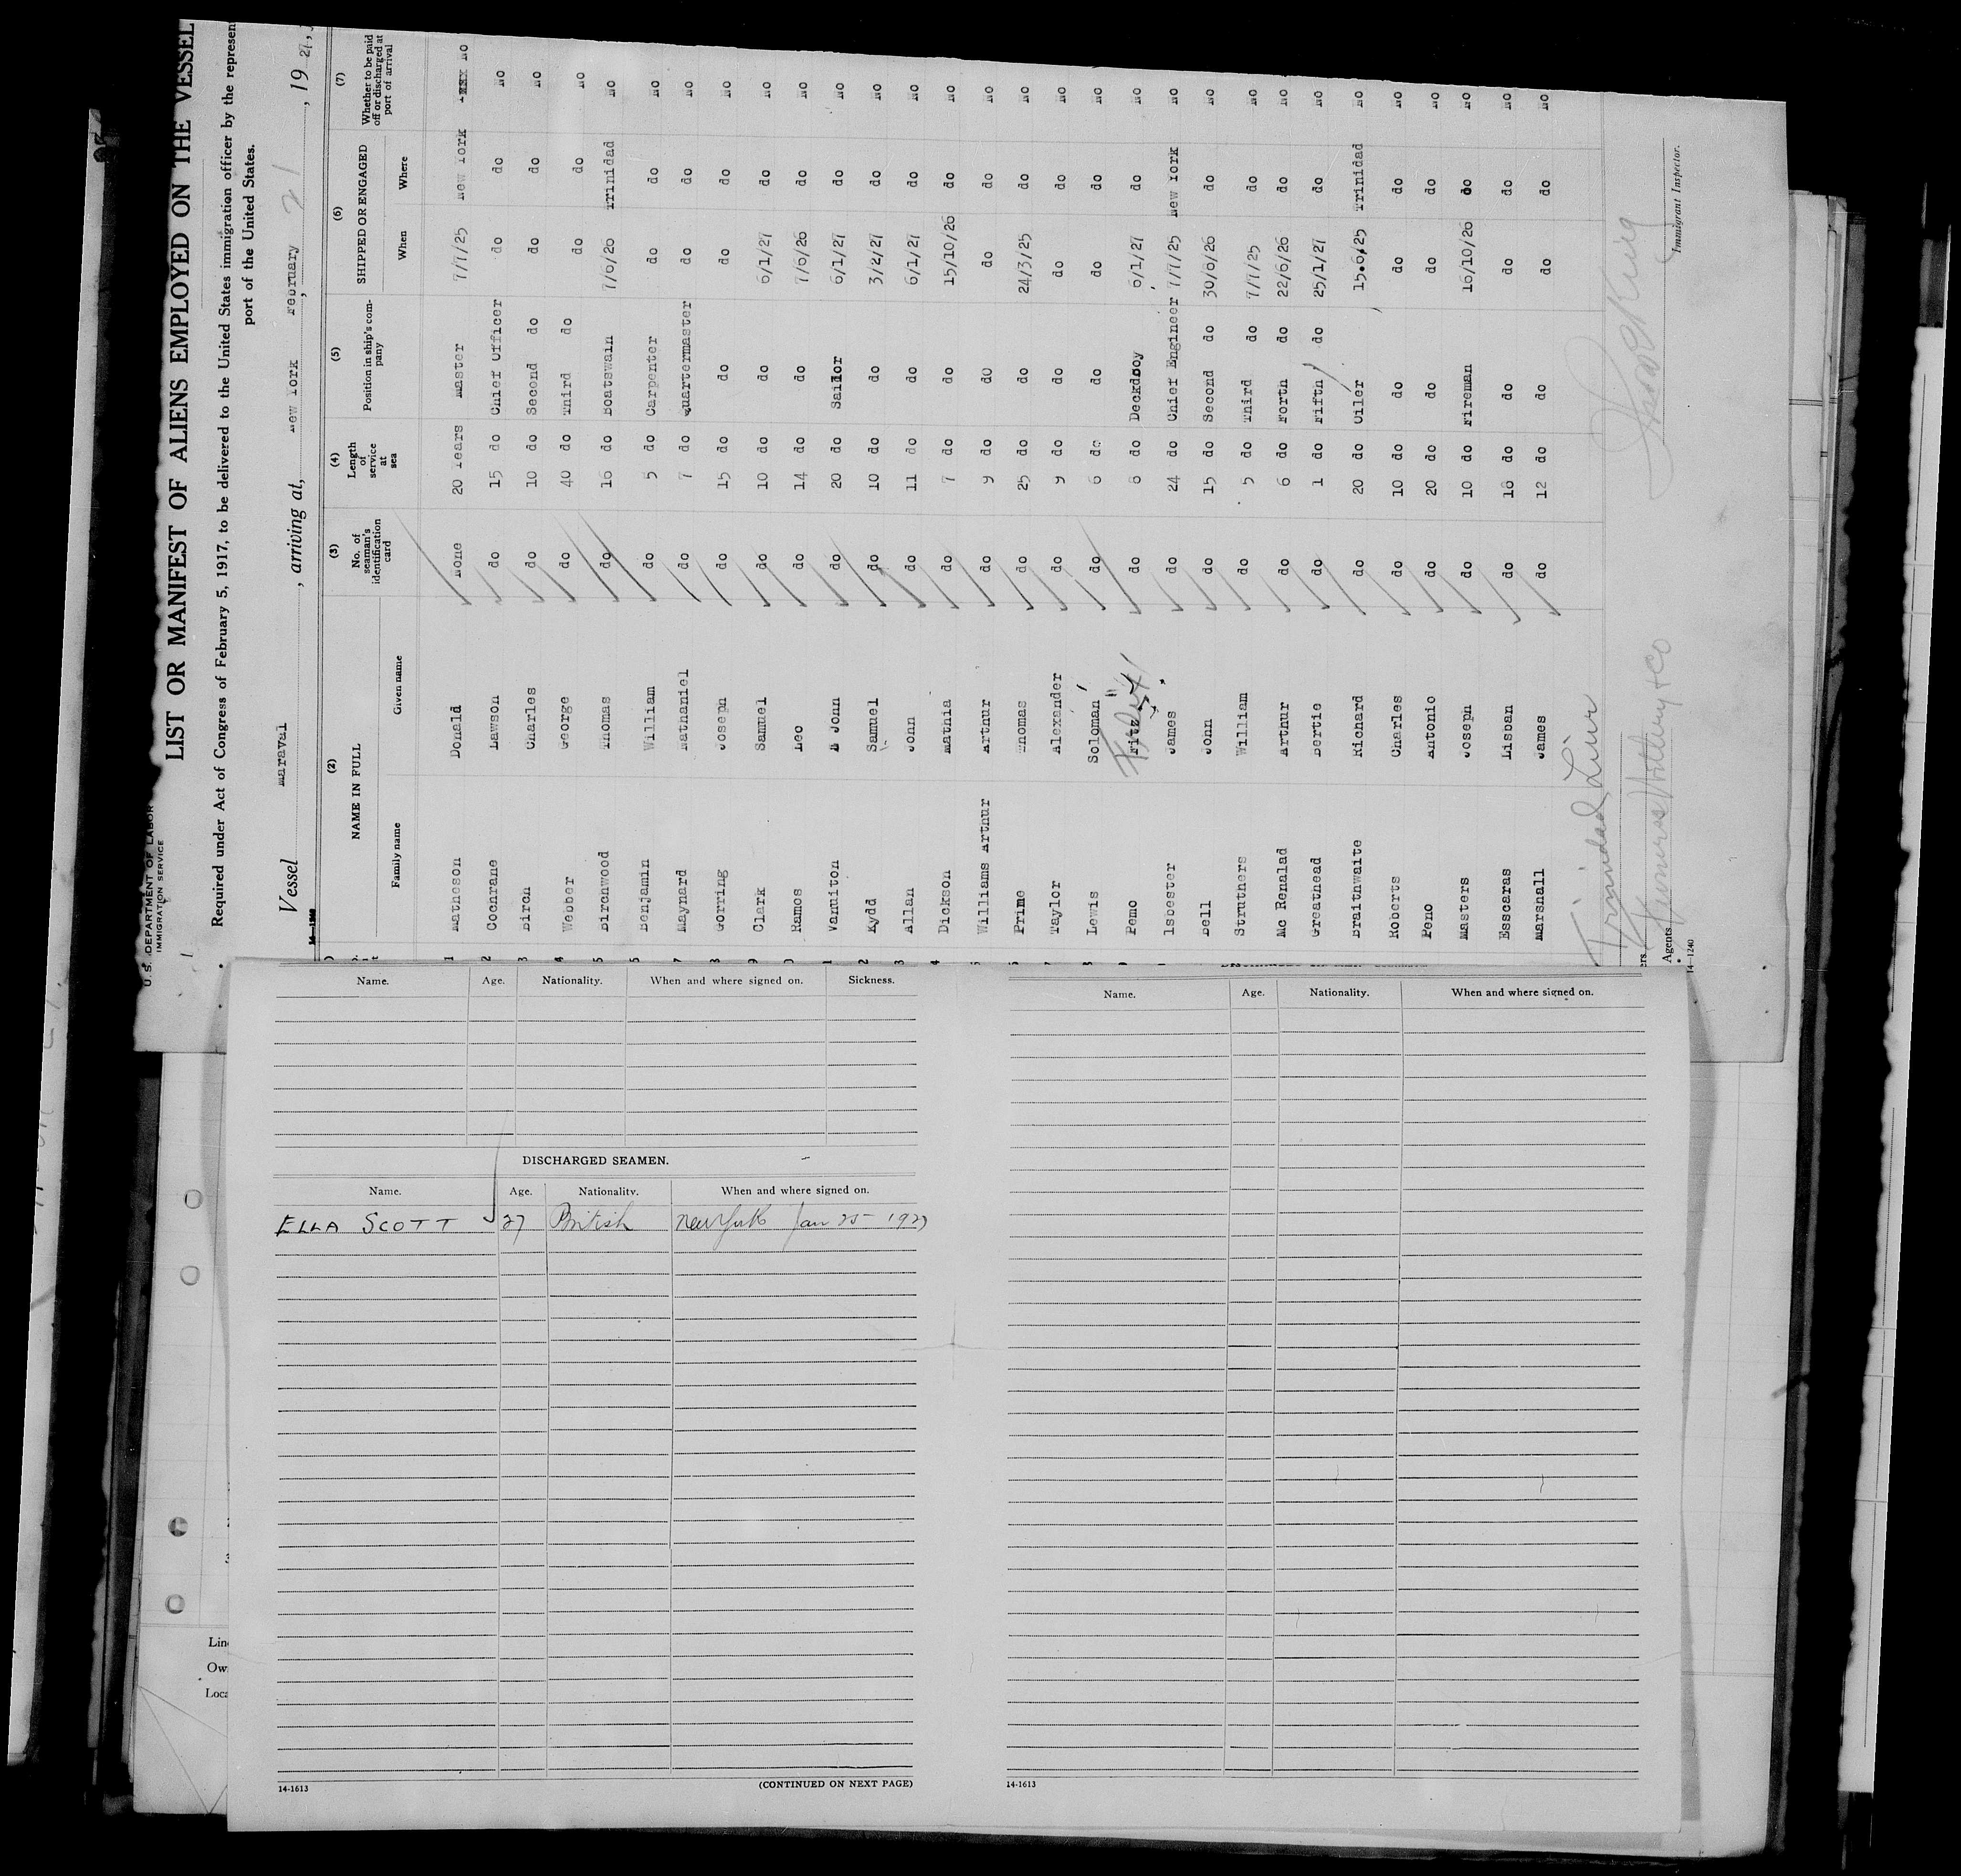 U.S. DEPARTMENT OF LABOR
IMMIGRATION SERVICE
LIST OR MANIFEST OF ALIENS EMPLOYED ON THE VESSEL
Required under Act of Congress of February 5, 1917, to be delivered to the United States immigration officer by the represen
port of the United States.
Vessel Maraval, arriving at, New York, February 21, 1927,
14-1240
(2) (3) (4) (5) (6) (7)
NAME IN FULL No. of seaman's identification card Length of service at sea Position in ship's company SHIPPED OR ENGAGED Whether to be paid off or discharged at port of arrival
Family name Given name When Where
1 Matheson Donald None 20 Years Master 7/7/25 New York No
2 Cochrane Lawson do 15 do Chief Officer do do No
3 Birch Charles do 10 do Second do do do No
4 Webber George do 40 do Third do do do No
5 Birchwood Thomas do 16 do Boatswain 7/6/26 Trinidad No
Benjamin William do 5 do Carpenter do do No
7 Maynard Nathaniel do 7 do Quartermaster do do No
8 Gorring Joseph do 15 do do do do No
9 Clark Samuel do 10 do do 6/1/27 do No
0 Ramos Leo do 14 do do 7/6/26 do No
1 Vanuiton John do 20 do Sailor 6/1/27 do No
2 Kydd Samuel do 10 do do 3/2/27 do No
3 Allan John do 11 do do 6/1/27 do No
4 Dickson Mathia do 7 do do 15/10/26 do No
Williams Arthur Arthur do 9 do do do do No
Prime Thomas do 25 do do 24/3/25 do No
Taylor Alexander do 9 do do do do No
Lewis Soloman do 6 do do do do No
Pemo Fritz do 6 do Deckboy 6/1/27 do No
Isbester James do 24 do Chief Engineer 7/7/25 New York No
Bell John do 15 do Second do 30/6/26 do No
Struthers William do 5 do Third do 7/7/25 do No
Mc Renalad Arthur do 6 do Forth do 22/6/26 do No
Greathead Bertie do 1 do Fifth do 25/1/27 do No
Braithwaite Richard do 20 do Oiler 15.6/25 Trinidad No
Roberts Charles do 10 do do do do No
Peno Antonio do 20 do do do do No
Masters Joseph do 10 do Fireman 16/10/26 do No
Esscaras Lisban do 16 do do do do No
Marshall James do 12 do do do do No
Trinidad Line
ers.
Agents Furness Withy & Co
Immigrant Inspector.
14-1240
Name. Age. Nationality. When and where signed on. Sickness.
DISCHARGED SEAMEN.
Name. Age. Nationality. When and where signed on.
ELLA SCOTT 27 British New York Jan 25 1927
14-1613 (CONTINUED ON NEXT PAGE)
Name. Age. Nationality. When and where signed on.
14-1613
Line
Ow
Loca